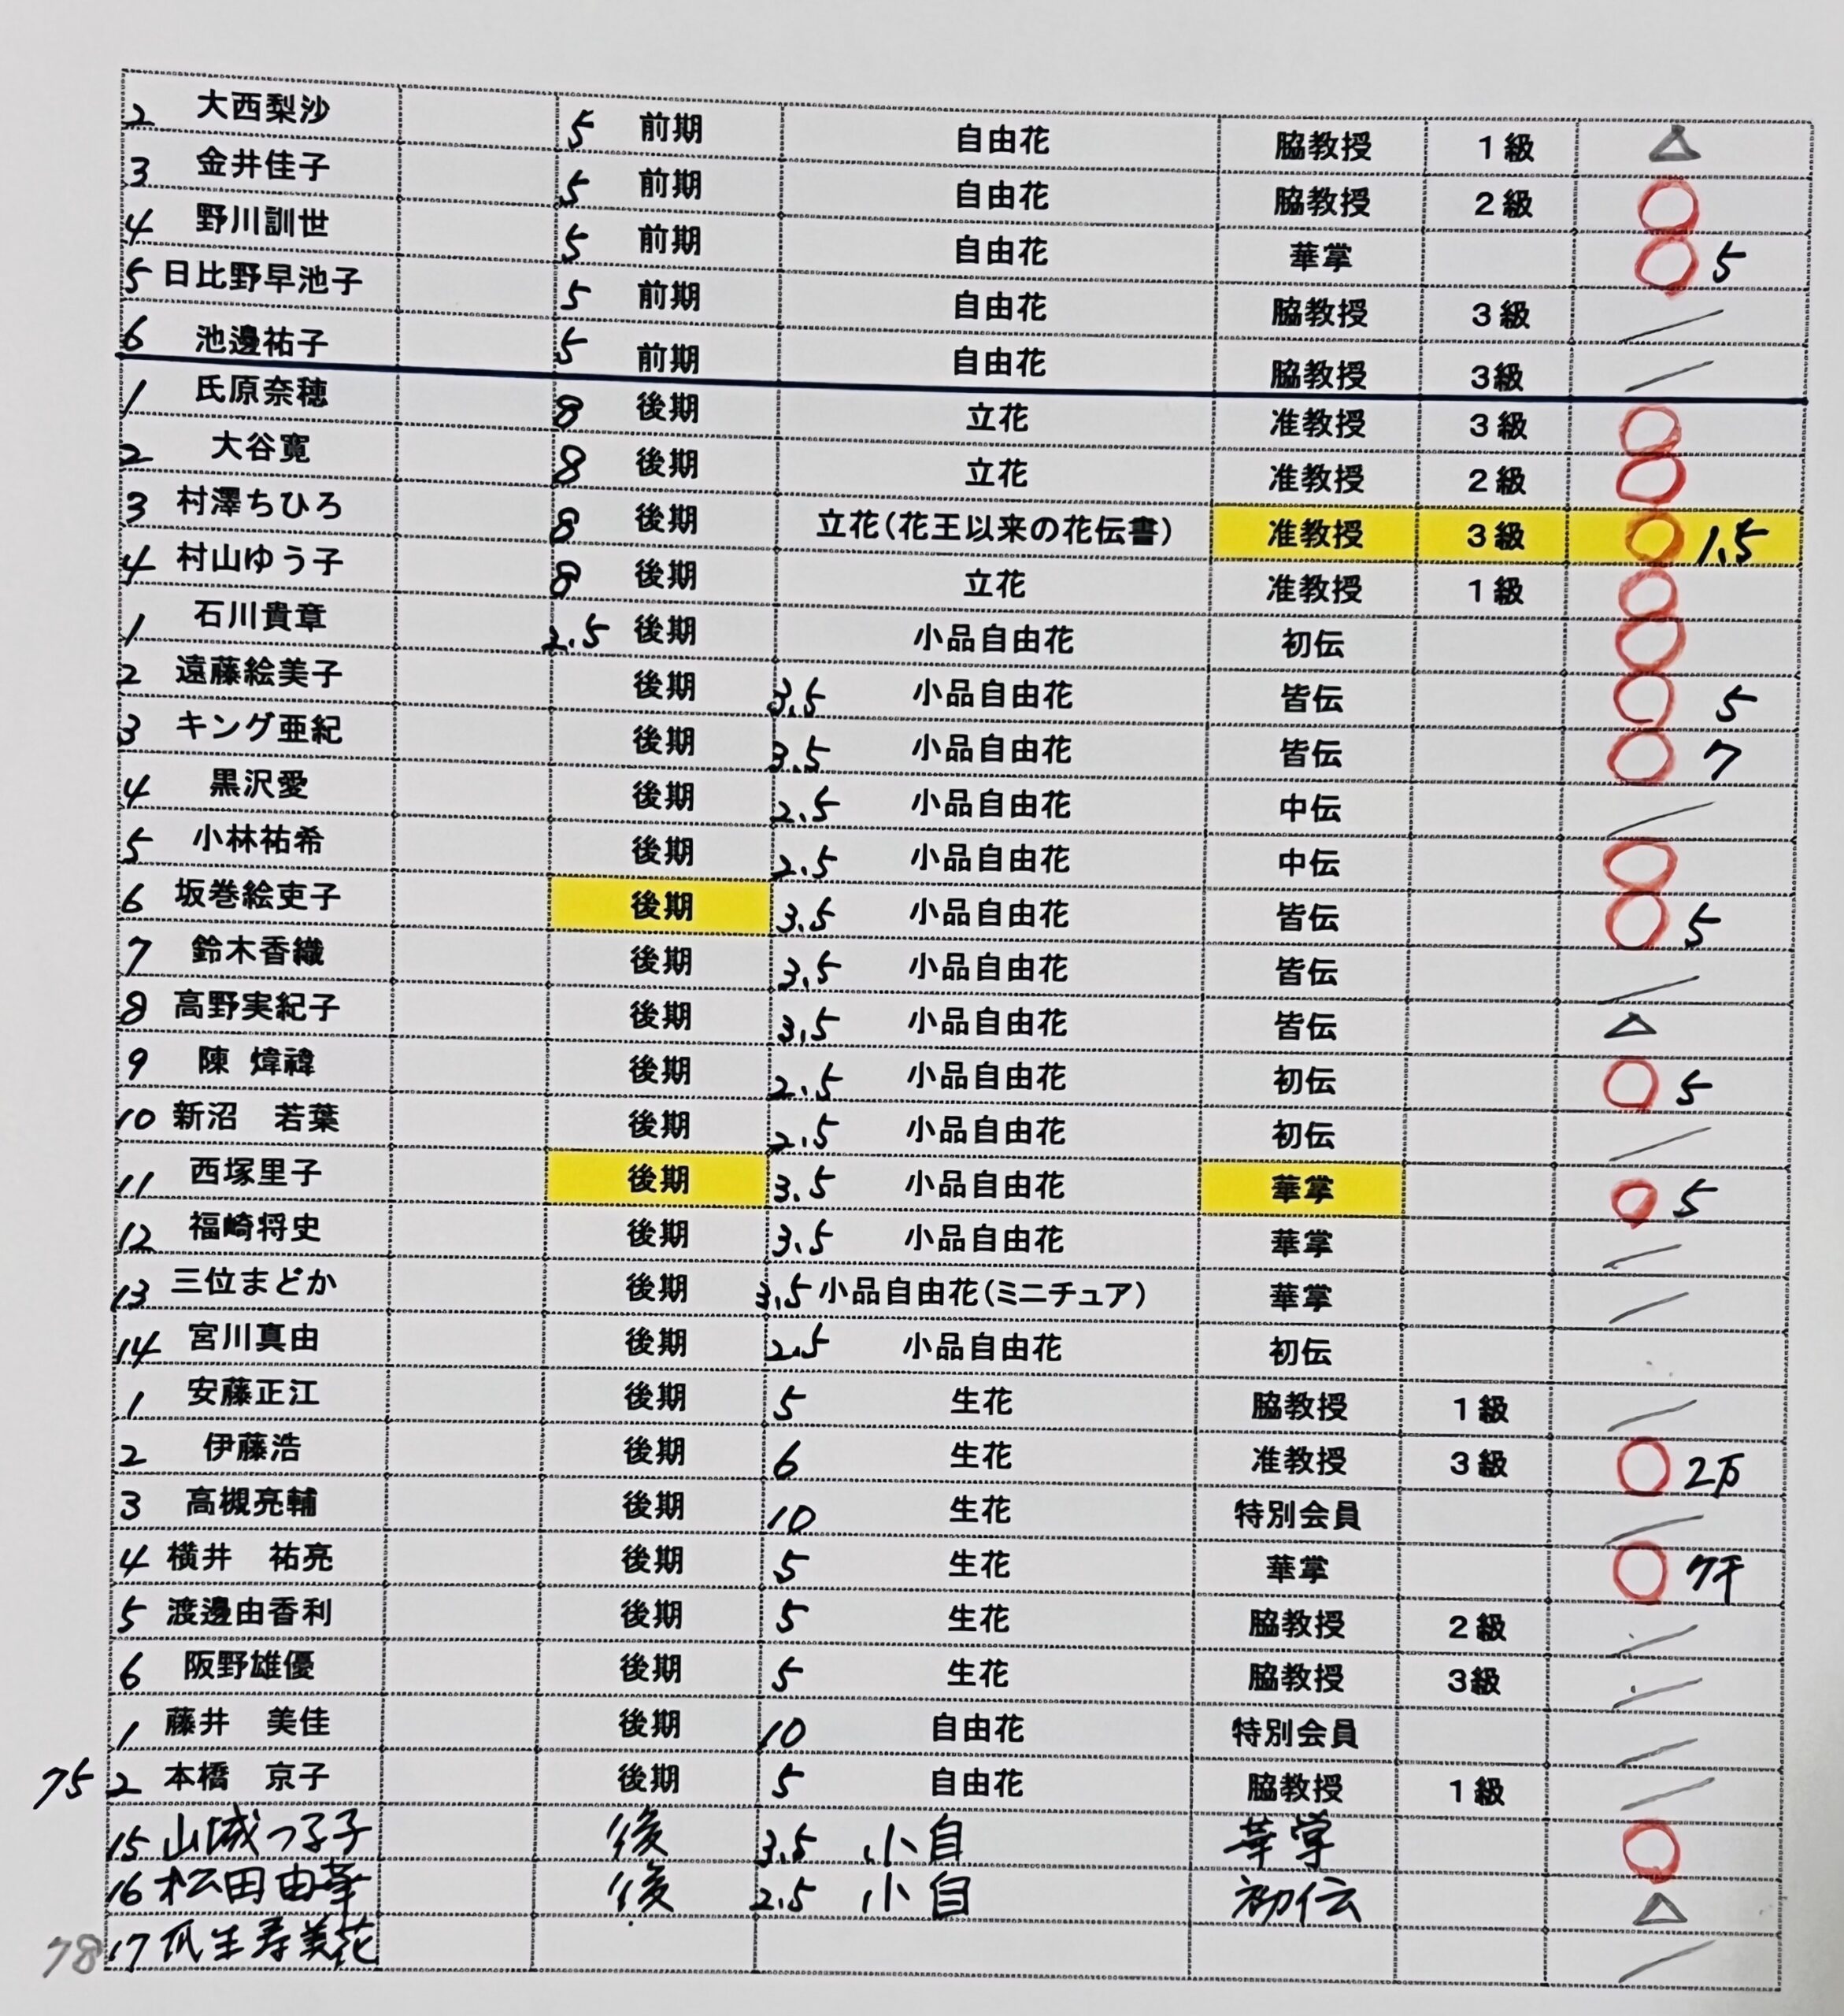 2 大西梨沙 5 前期 自由花 脇教授 1級 △
3 金井佳子 5 前期 自由花 脇教授 2級 ○
4 野川訓世 5 前期 自由花 華掌 ○ 5
5 日比野早池子 5 前期 自由花 脇教授 3級
6 池邊祐子 5 前期 自由花 脇教授 3級
1 氏原奈穂 8 後期 立花 准教授 3級 ○
2 大谷寛 8 後期 立花 准教授 2級 ○
3 村澤ちひろ 8 後期 立花(花王以来の花伝書) 准教授 3級 ○ 1.5
4 村山ゆう子 8 後期 立花 准教授 1級 ○
1 石川貴章 2.5 後期 小品自由花 初伝 ○
2 遠藤絵美子 後期 3.5 小品自由花 皆伝 ○ 5
3 キング亜紀 後期 3.5 小品自由花 皆伝 ○ 7
4 黒沢愛 後期 2.5 小品自由花 中伝
5 小林祐希 後期 2.5 小品自由花 中伝 ○
6 坂巻絵吏子 後期 3.5 小品自由花 皆伝 ○ 5
7 鈴木香織 後期 3.5 小品自由花 皆伝
8 高野実紀子 後期 3.5 小品自由花 皆伝 △
9 陳 煒禕 後期 2.5 小品自由花 初伝 ○ 5
10 新沼 若葉 後期 2.5 小品自由花 初伝
11 西塚里子 後期 3.5 小品自由花 華掌 ○ 5
12 福崎将史 後期 3.5 小品自由花 華掌
13 三位まどか 後期 3.5 小品自由花(ミニチュア) 華掌
14 宮川真由 後期 2.5 小品自由花 初伝
1 安藤正江 後期 5 生花 脇教授 1級
2 伊藤浩 後期 6 生花 准教授 3級 ○ 2万
3 高槻亮輔 後期 10 生花 特別会員
4 横井 祐亮 後期 5 生花 華掌 ○ 7千
5 渡邊由香利 後期 5 生花 脇教授 2級
6 阪野雄優 後期 5 生花 脇教授 3級
1 藤井 美佳 後期 10 自由花 特別会員
75 2 本橋 京子 後期 5 自由花 脇教授 1級
15 山城つる子 後 3.5 小自 華掌 ○
16 松田由華 後 2.5 小自 初伝 △
78 17 瓜生寿美花